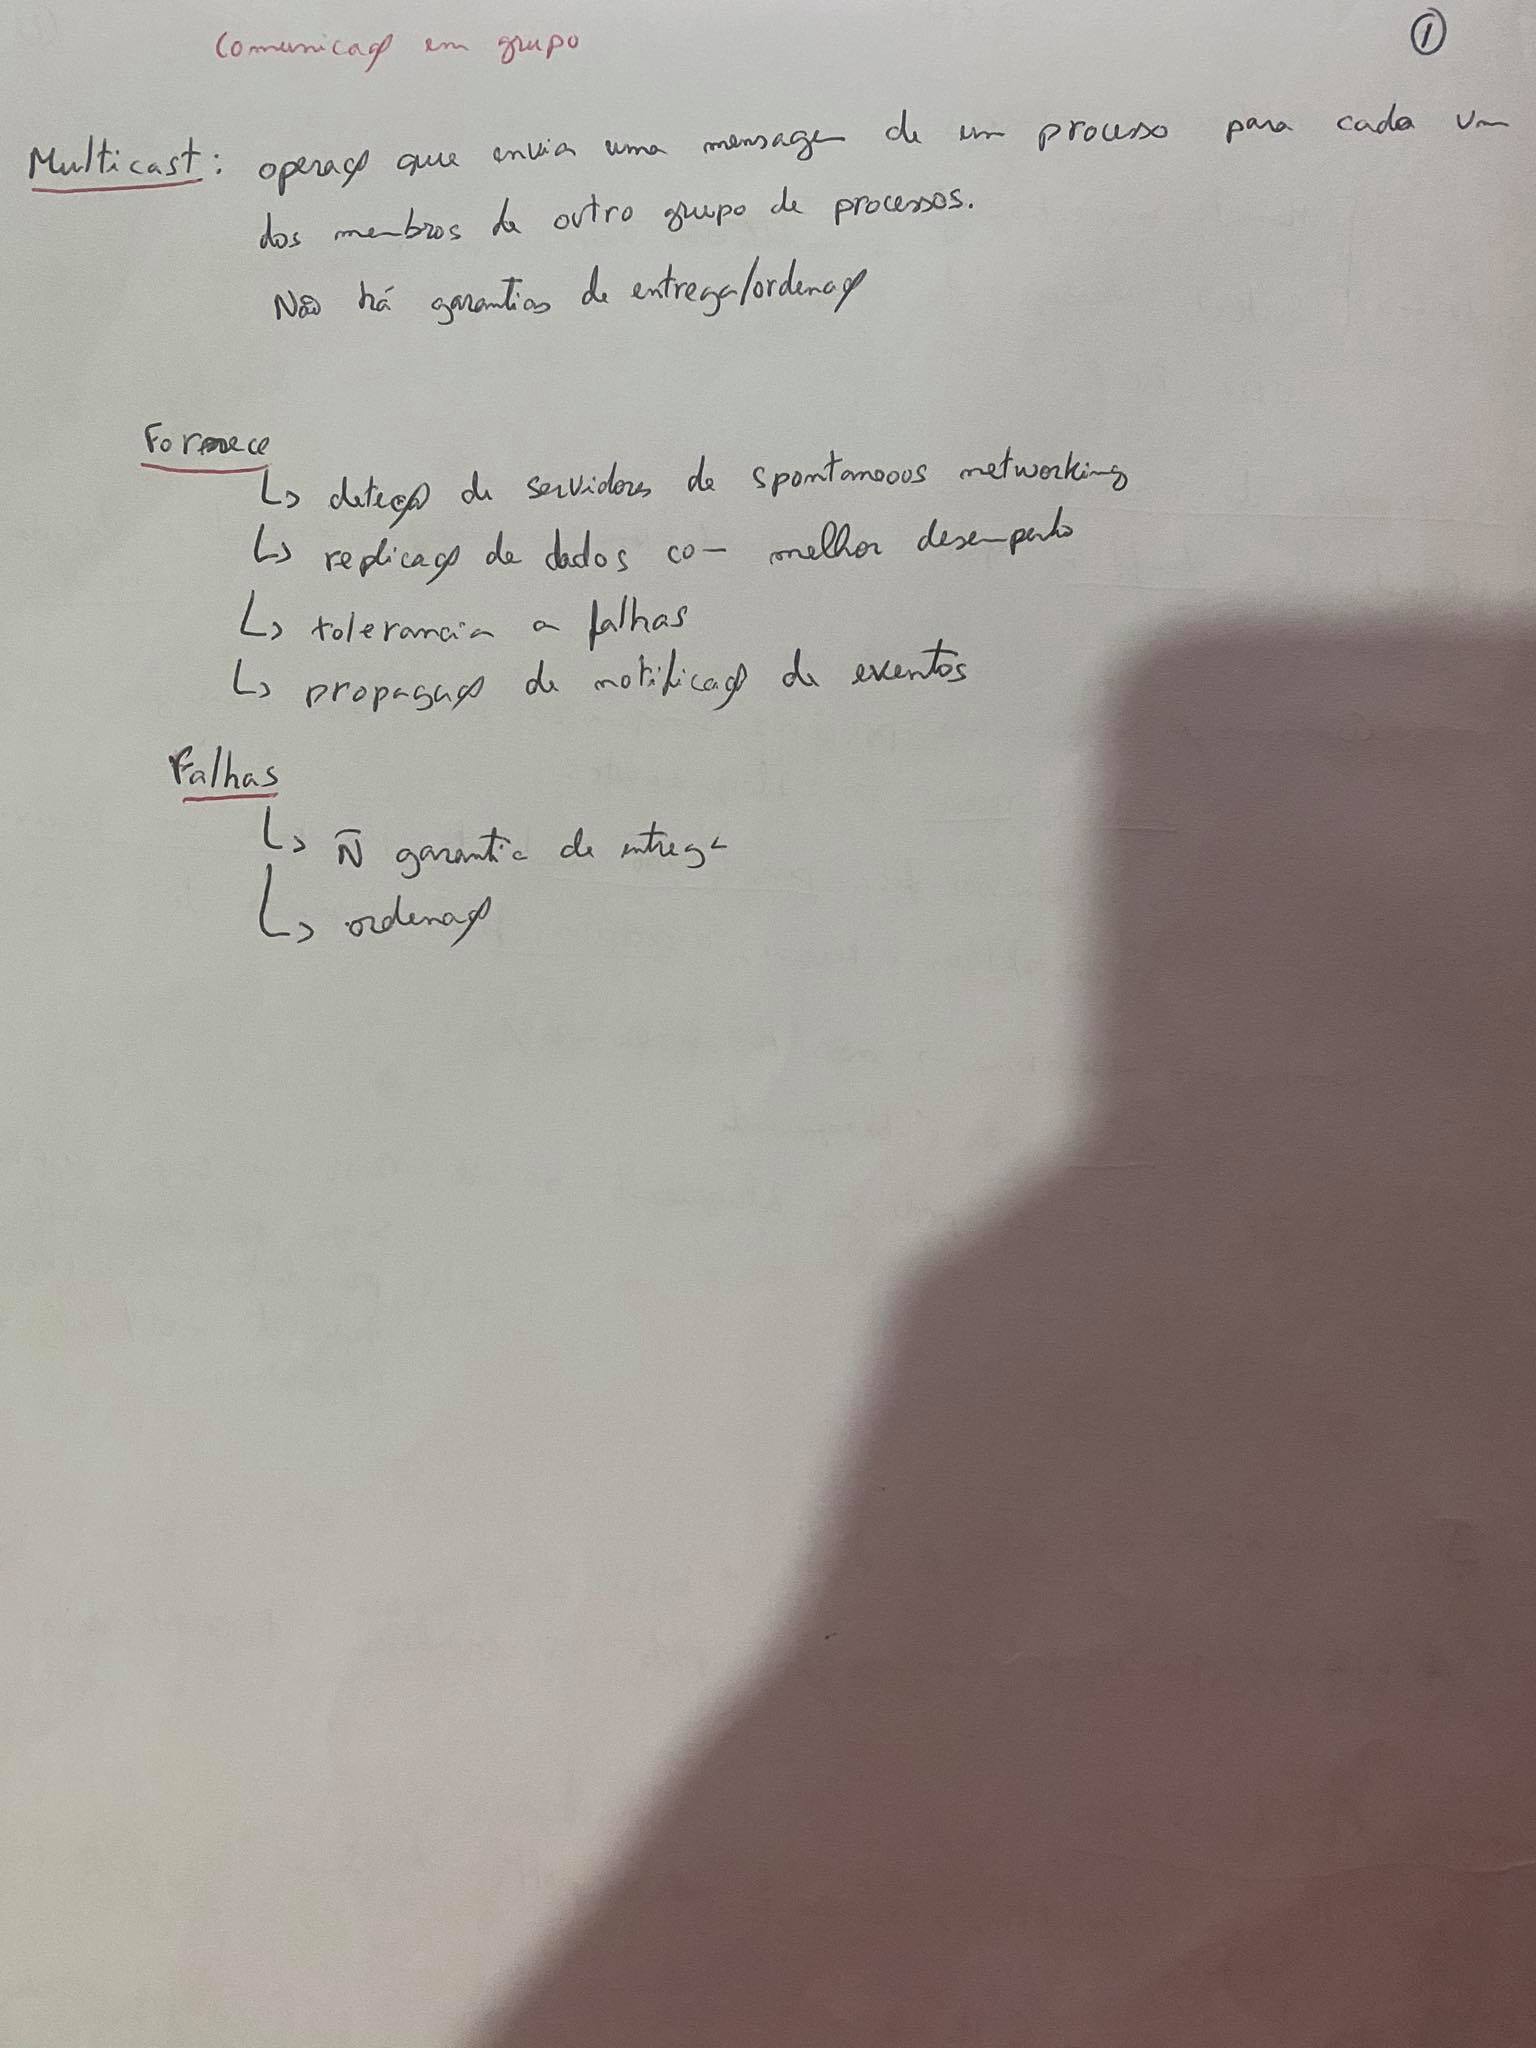 Comunicaç͂ em grupo
①
Multicast: operaç͂ que envia uma mensagem de um processo para cada um
dos membros de outro grupo de processos.
Não há garantias de entrega/ordenaç͂
Fornece
↳ deteç͂ de servidores de spontaneous networking
↳ replicaç͂ de dados com melhor desempenho
↳ tolerancia a falhas
↳ propagaç͂ de notificaç͂ de eventos
Falhas
↳ Ñ garantia de entrega
↳ ordenaç͂